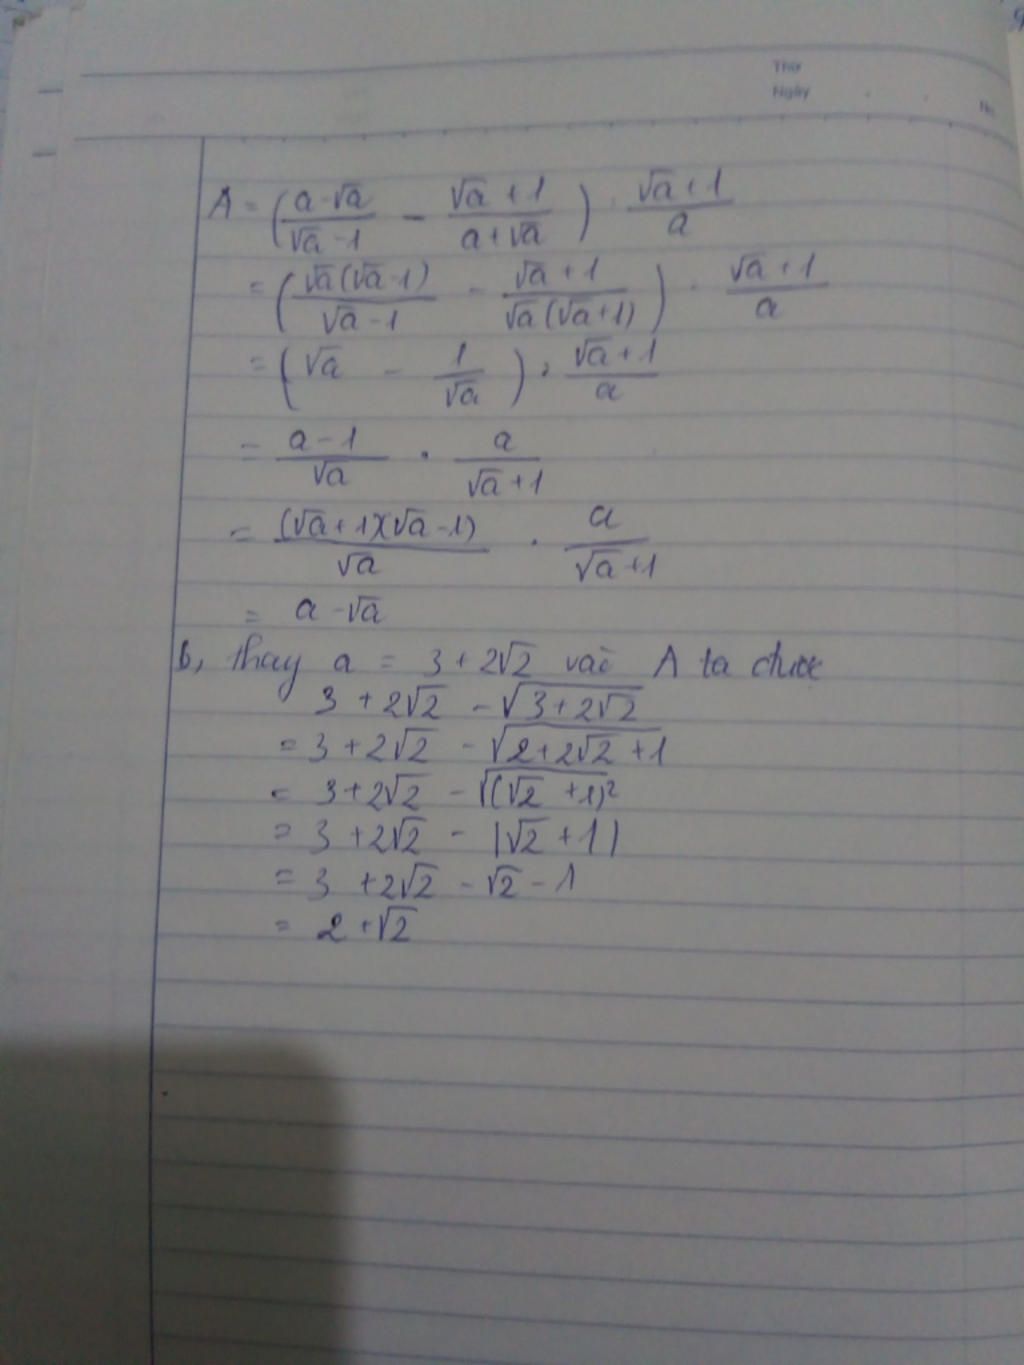 Thứ
Ngày
No.
A = ( (a - √a)/(√a - 1) - (√a + 1)/(a + √a) ) : (√a + 1)/a
= ( √a(√a - 1)/(√a - 1) - (√a + 1)/(√a(√a + 1)) ) . (√a + 1)/a
= ( √a - 1/√a ) : (√a + 1)/a
= (a - 1)/√a . a/(√a + 1)
= (√a + 1)(√a - 1)/√a . a/(√a + 1)
= a - √a
b, thay a = 3 + 2√2 vào A ta được
3 + 2√2 - √(3 + 2√2)
= 3 + 2√2 - √(2 + 2√2 + 1)
= 3 + 2√2 - √((√2 + 1)²)
= 3 + 2√2 - |√2 + 1|
= 3 + 2√2 - √2 - 1
= 2 + √2